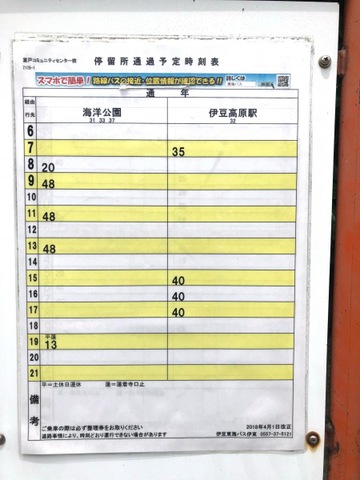 停留所通過予定時刻表
スマホで簡単！路線バスの接近・位置情報が確認できる!!
詳しくは
通年
経由
行先
海洋公園
31 33 37
伊豆高原駅
32
6
7 35
8 20
9 48
10
11 48
12
13 48
14
15 40
16 40
17 40
18
19 平蓮
13
20
21
備考
平=土休日運休 蓮=蓮着寺口止
ご乗車の際は必ず整理券をお取りください
道路事情により、時刻どおり運行できない場合があります
2018年4月1日改正
伊豆東海バス伊東 0557-37-5121